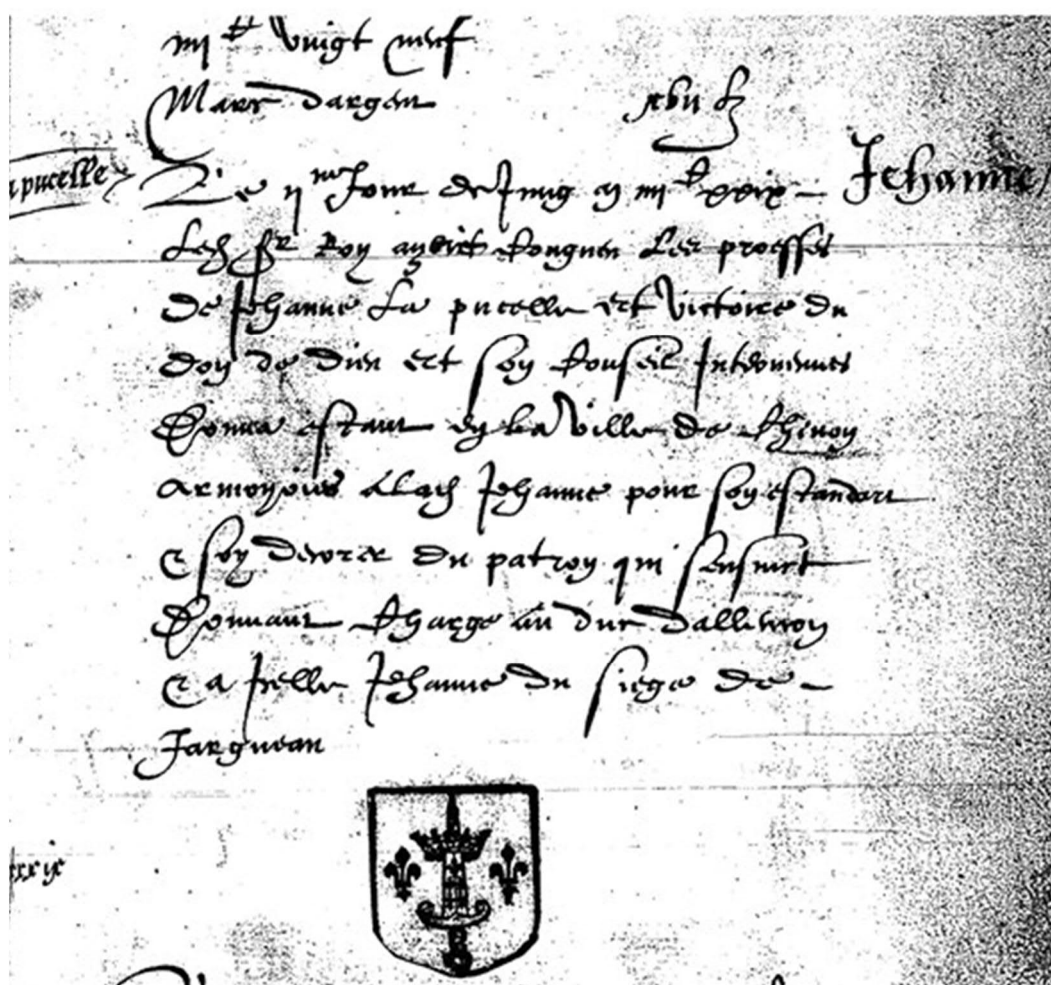 iiii^c vingt neuf
Marc dargent xvii ℔
a pucelle Le ii^me Jour de Juing m iiii^c xxix – Jehanne
Led^t s^r Roy ayant congneu les proesses
de Jehanne la pucelle et victoire du
don de dieu et son conseil Intervenues
Donna estant en la ville de Chinon
armoyries à lad^e Jehanne pour son estandart
& soy decorer du patron qui sensuict
Donnant charge au duc dallencon
& a jcelle Jehanne du siege de –
Jargueau